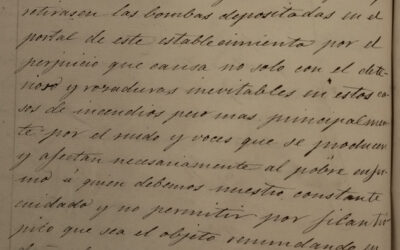 retirasen las bombas depositadas en el
portal de este establecimiento por el
perjuicio que causa no solo con el dete-
rioro y rozaduras inevitables en estos ca-
sos de incendios pero mas principalmen-
te por el ruido y voces que se producen
y afectan necesariamente al pobre enfer-
mo á quien debemos nuestro constante
cuidado y no permitir por
que sea el objeto